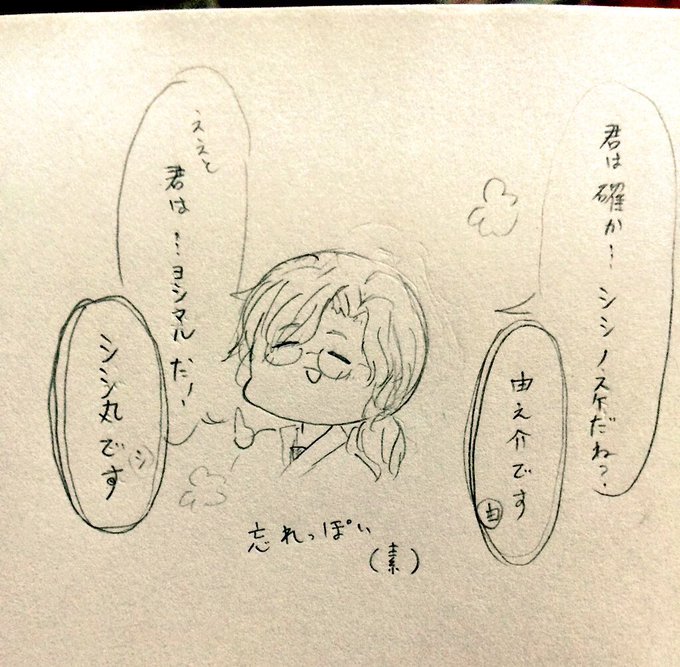 君は確か…シシノスケだね?
由之介です
由
ええと
君は…ヨシマルだ!
シシ丸です
(シ)
忘れっぽい
(素)